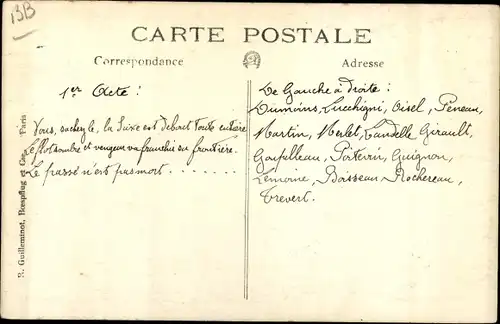 13B
CARTE POSTALE
Correspondance
Adresse
1er Acte :
Vous, sachez le, la Suisse est debout toute entière
Le flot sombre et vengeur va franchir sa frontière.
Le passé n'est pas mort . . . . . . .
De Gauche à Droite :
Dumoins, Lucchigni, Oisel, Péneau,
Martin, Merlet, Landelle, Girault,
Gaufilleau, Poitevin, Guignon,
Lemoine, Boisseau, Rochereau,
Trevert.
R. Guilleminot, Bœspflug et Cie. - Paris